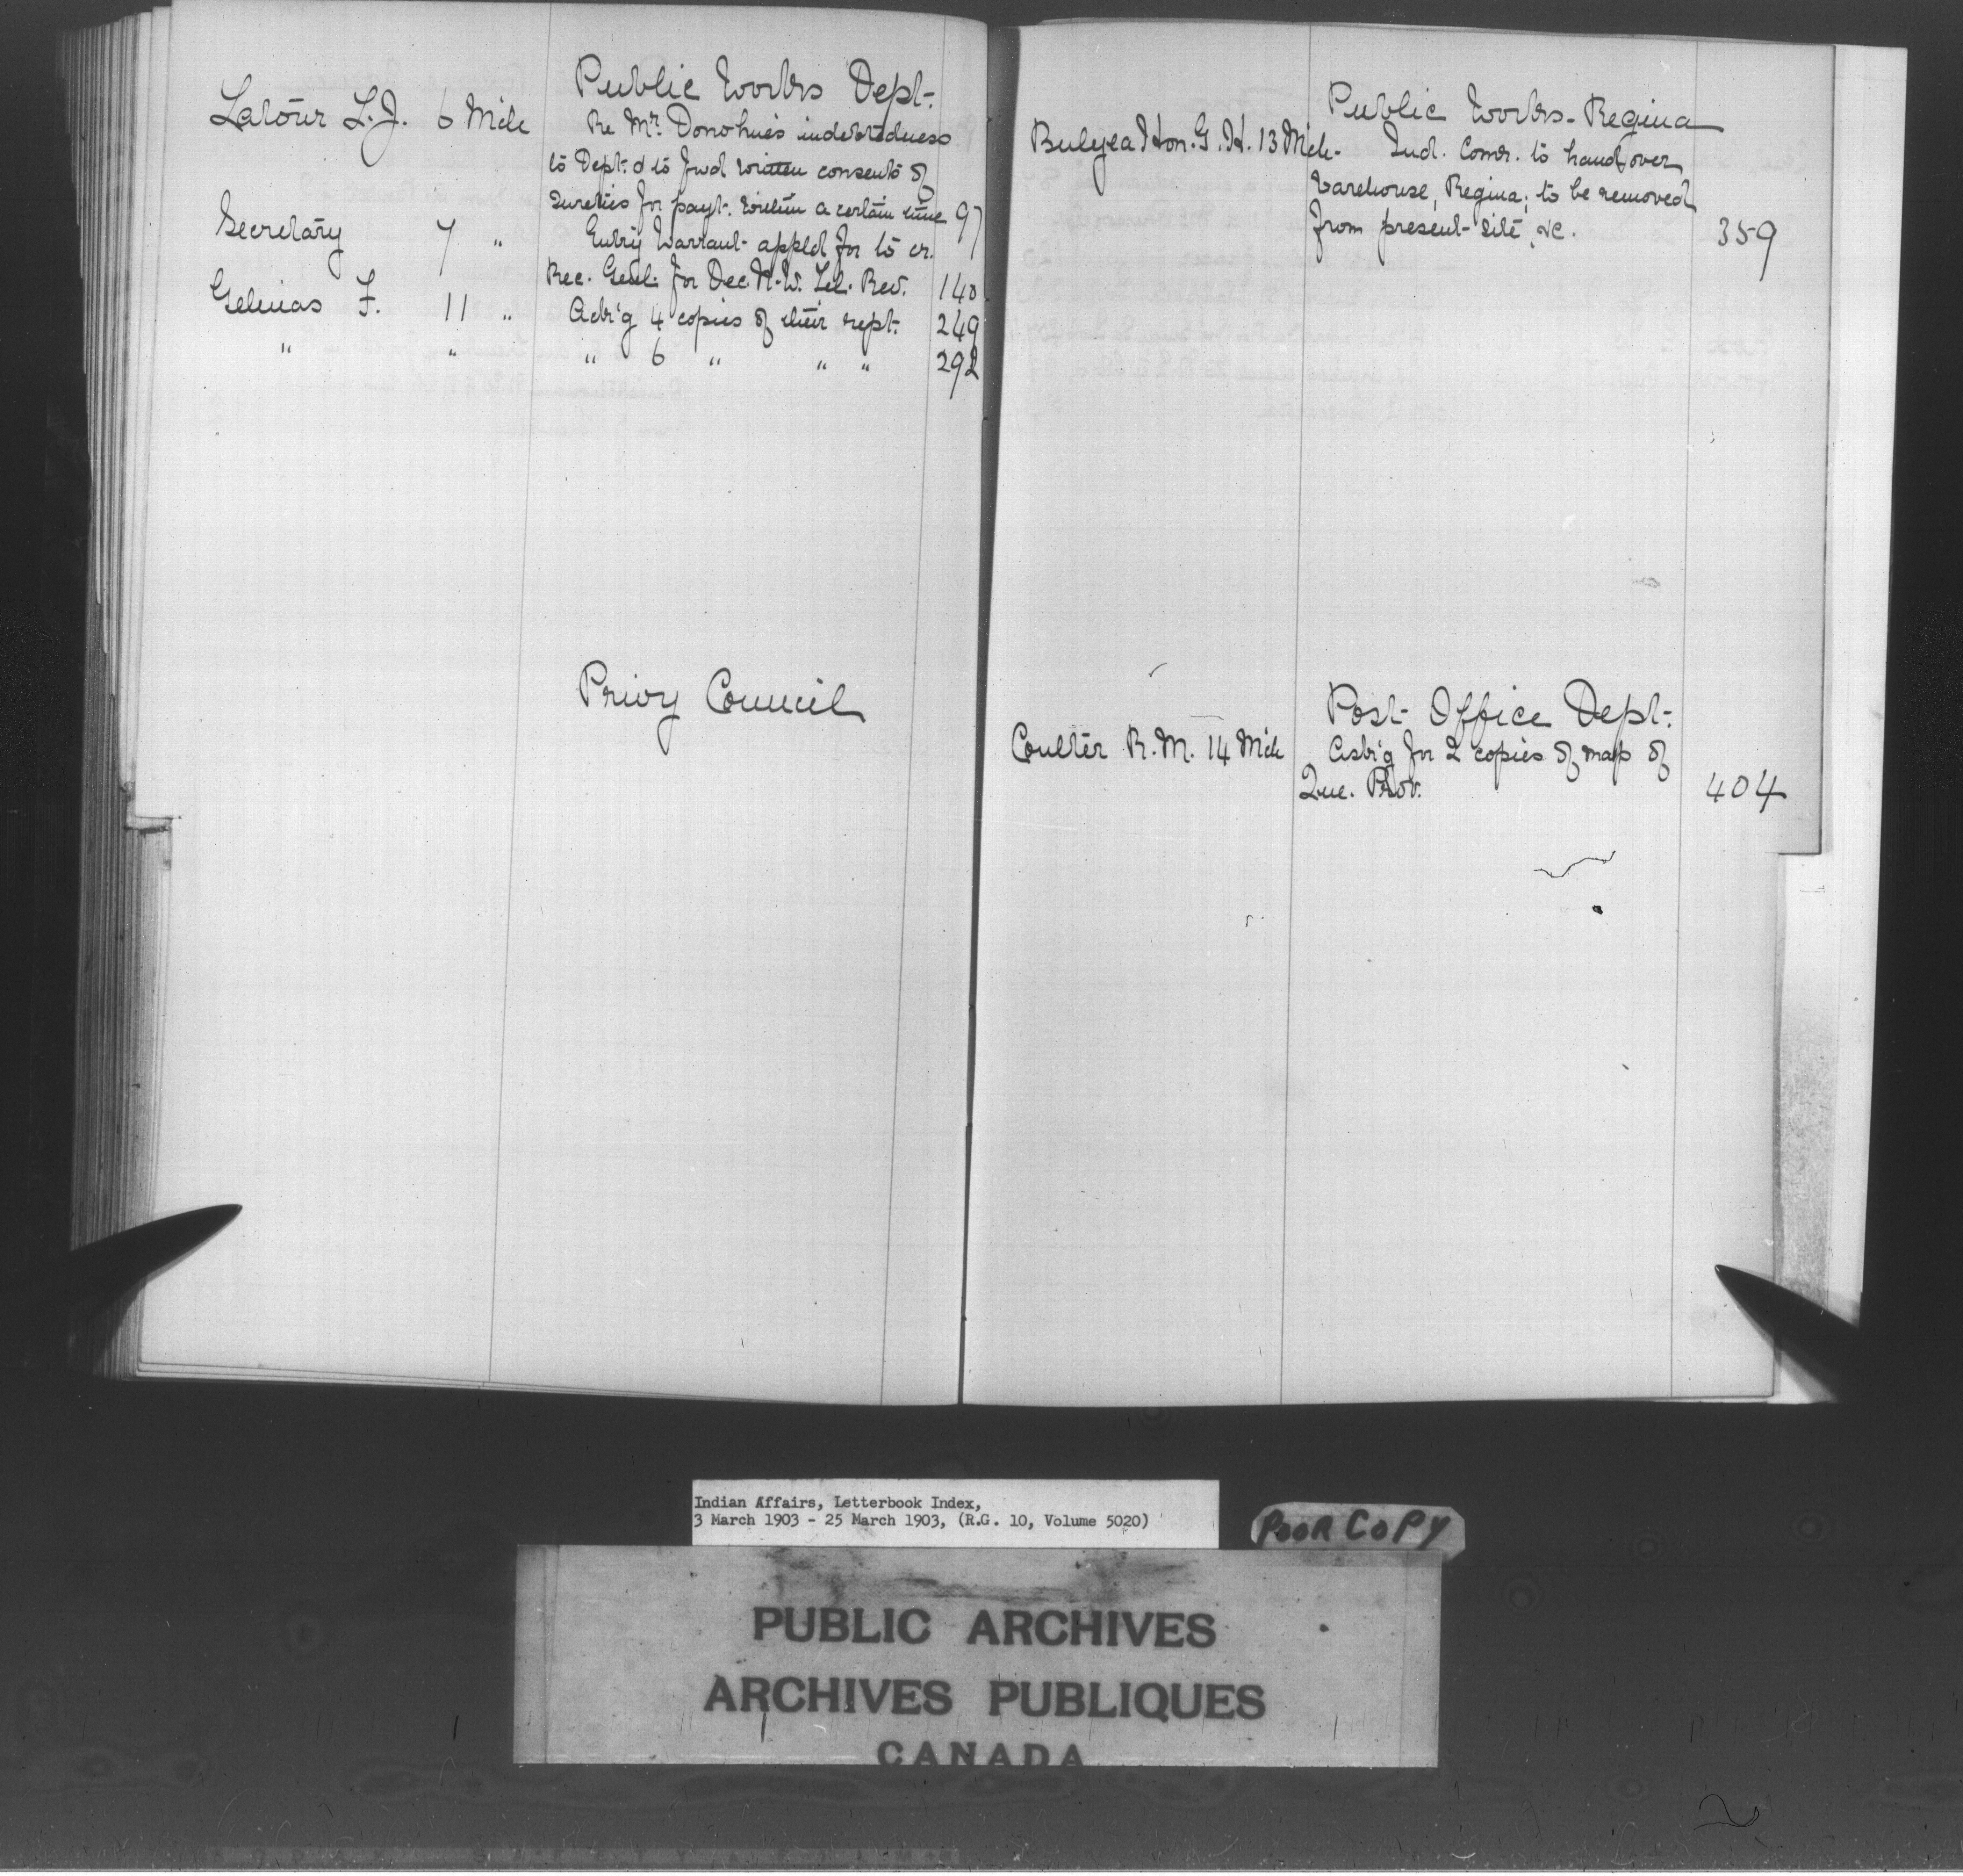 Public Works Dept.
Latour L.J. 6 Mch Re Mr. Donohue's indebtedness
to Dept. & to fwd written consents of
sureties for payt. within a certain time 97
Secretary 7 " Entry Warrant appld for to cr.
Rec. Genl. for Dec. N.W. Tel. Rev. 140
Gelinas F. 11 " Ackg 4 copies of their rept. 249
" " " 6 " " " 292
Privy Council
Public Works - Regina
Bulyea Hon. G.H. 13 Mch. Ind. Comr. to hand over
Warehouse, Regina, to be removed
from present site, &c. 359
Post Office Dept.
Coulter R.M. 14 Mch Askg for 2 copies of map of
Que. Prov. 404
Indian Affairs, Letterbook Index,
3 March 1903 - 25 March 1903, (R.G. 10, Volume 5020)
POOR COPY
PUBLIC ARCHIVES
ARCHIVES PUBLIQUES
CANADA